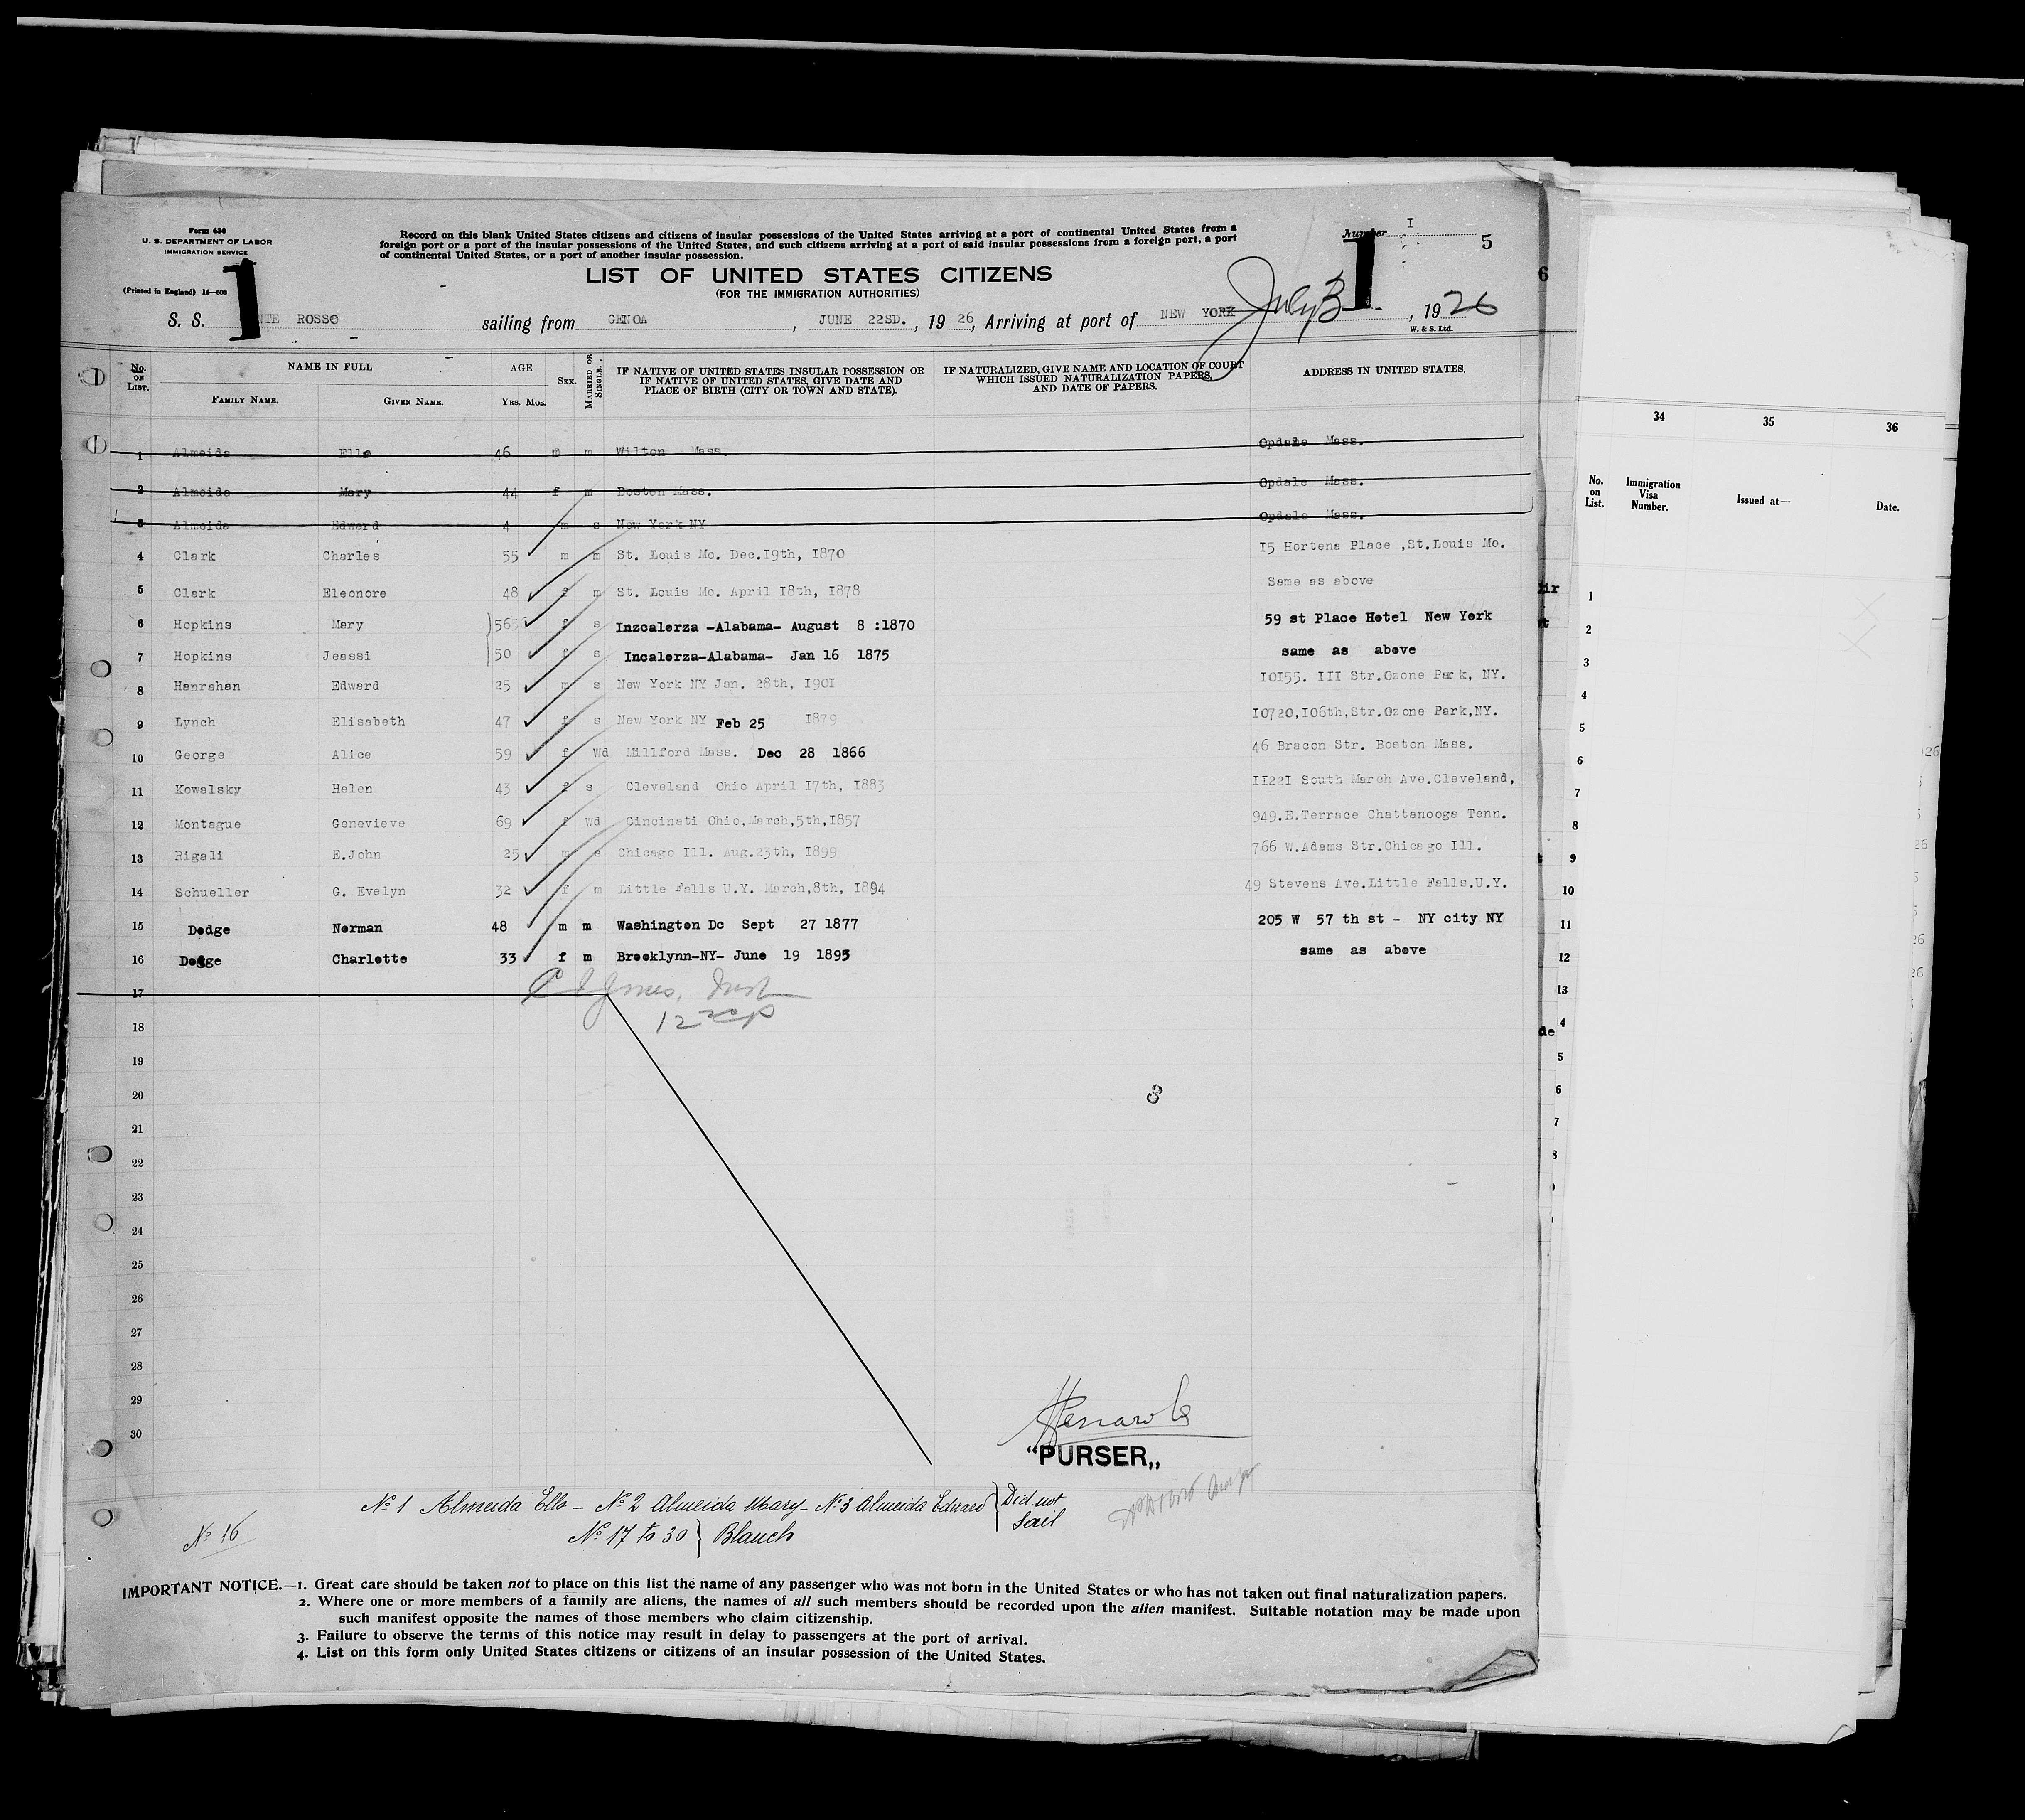 Form 630
U. S. DEPARTMENT OF LABOR
IMMIGRATION SERVICE
(Printed in England) 14—608
Record on this blank United States citizens and citizens of insular possessions of the United States arriving at a port of continental United States from a
foreign port or a port of the insular possessions of the United States, and such citizens arriving at a port of said insular possessions from a foreign port, a port
of continental United States, or a port of another insular possession.
Number I
5
6
1
1
LIST OF UNITED STATES CITIZENS
(FOR THE IMMIGRATION AUTHORITIES)
S. S. NTE ROSSO sailing from GENOA, JUNE 22SD., 19 26, Arriving at port of NEW YORK July 3, 1926
W. & S. Ltd.
No. ON LIST. NAME IN FULL AGE SEX. MARRIED OR SINGLE. IF NATIVE OF UNITED STATES INSULAR POSSESSION OR IF NATIVE OF UNITED STATES, GIVE DATE AND PLACE OF BIRTH (CITY OR TOWN AND STATE). IF NATURALIZED, GIVE NAME AND LOCATION OF COURT WHICH ISSUED NATURALIZATION PAPERS, AND DATE OF PAPERS. ADDRESS IN UNITED STATES.
FAMILY NAME. GIVEN NAME. YRS. MOS.
1 Almeida Ella 46 m m Wilton Mass. Opdale Mass.
2 Almeida Mary 44 f m Boston Mass. Opdale Mass.
3 Almeida Edward 4 m s New York NY Opdale Mass.
4 Clark Charles 55 m m St. Louis Mo. Dec.I9th, I870 I5 Hortens Place ,St.Louis Mo.
5 Clark Eleonore 48 f m St. Louis Mo. April I8th, I878 Same as above
6 Hopkins Mary 56 f s Inzcalerza -Alabama- August 8 :1870 59 st Place Hotel New York
7 Hopkins Jeassi 50 f s Incalerza-Alabama- Jan 16 1875 same as above
8 Hanrahan Edward 25 m s New York NY Jan. 28th, I90I I0I55. III Str.Ozone Park, NY.
9 Lynch Elisabeth 47 f s New York NY Feb 25 I879 I0720,I06th,Str.Ozone Park,NY.
10 George Alice 59 f Wd Millford Mass. Dec 28 1866 46 Bracon Str. Boston Mass.
11 Kowalsky Helen 43 f s Cleveland Ohio April I7th, I883 II22I South March Ave.Cleveland,
12 Montague Genevieve 69 f Wd Cincinati Ohio,March,5th,I857 949.E.Terrace Chattanooga Tenn.
13 Rigali E.John 25 m s Chicago Ill. Aug.23th, I899 766 W.Adams Str.Chicago Ill.
14 Schueller G. Evelyn 32 f m Little Falls U.Y. March,8th, I894 49 Stevens Ave.Little Falls.U.Y.
15 Dodge Norman 48 m m Washington Dc Sept 27 1877 205 W 57 th st - NY city NY
16 Dodge Charlotte 33 f m Brooklynn-NY- June 19 1895 same as above
17
18
19
20
21
22
23
24
25
26
27
28
29
30
"PURSER„
No 1 Almeida Ella - No 2 Almeida Mary - No 3 Almeida Edward } Did not Sail
No 16
No 17 to 30 } Blanch
IMPORTANT NOTICE.—1. Great care should be taken not to place on this list the name of any passenger who was not born in the United States or who has not taken out final naturalization papers.
2. Where one or more members of a family are aliens, the names of all such members should be recorded upon the alien manifest. Suitable notation may be made upon
such manifest opposite the names of those members who claim citizenship.
3. Failure to observe the terms of this notice may result in delay to passengers at the port of arrival.
4. List on this form only United States citizens or citizens of an insular possession of the United States.
34 35 36
No. on List. Immigration Visa Number. Issued at— Date.
1
2
3
4
5
6
7
8
9
10
11
12
13